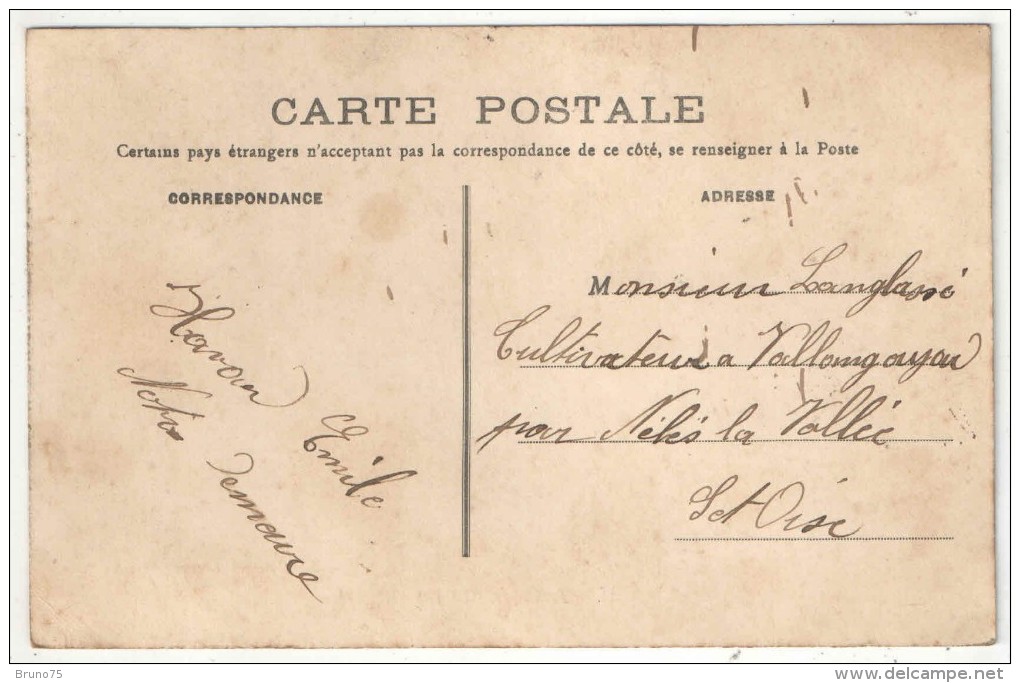 CARTE POSTALE
Certains pays étrangers n'acceptent pas la correspondance de ce côté, se renseigner à la Poste
CORRESPONDANCE
Havard Emile
Notre Demeure
ADRESSE
Monsieur Langlassé
Cultivateur a Vallangoujard
par Nélés la Vallée
S et Oise
Bruno75
www.delcampe.net